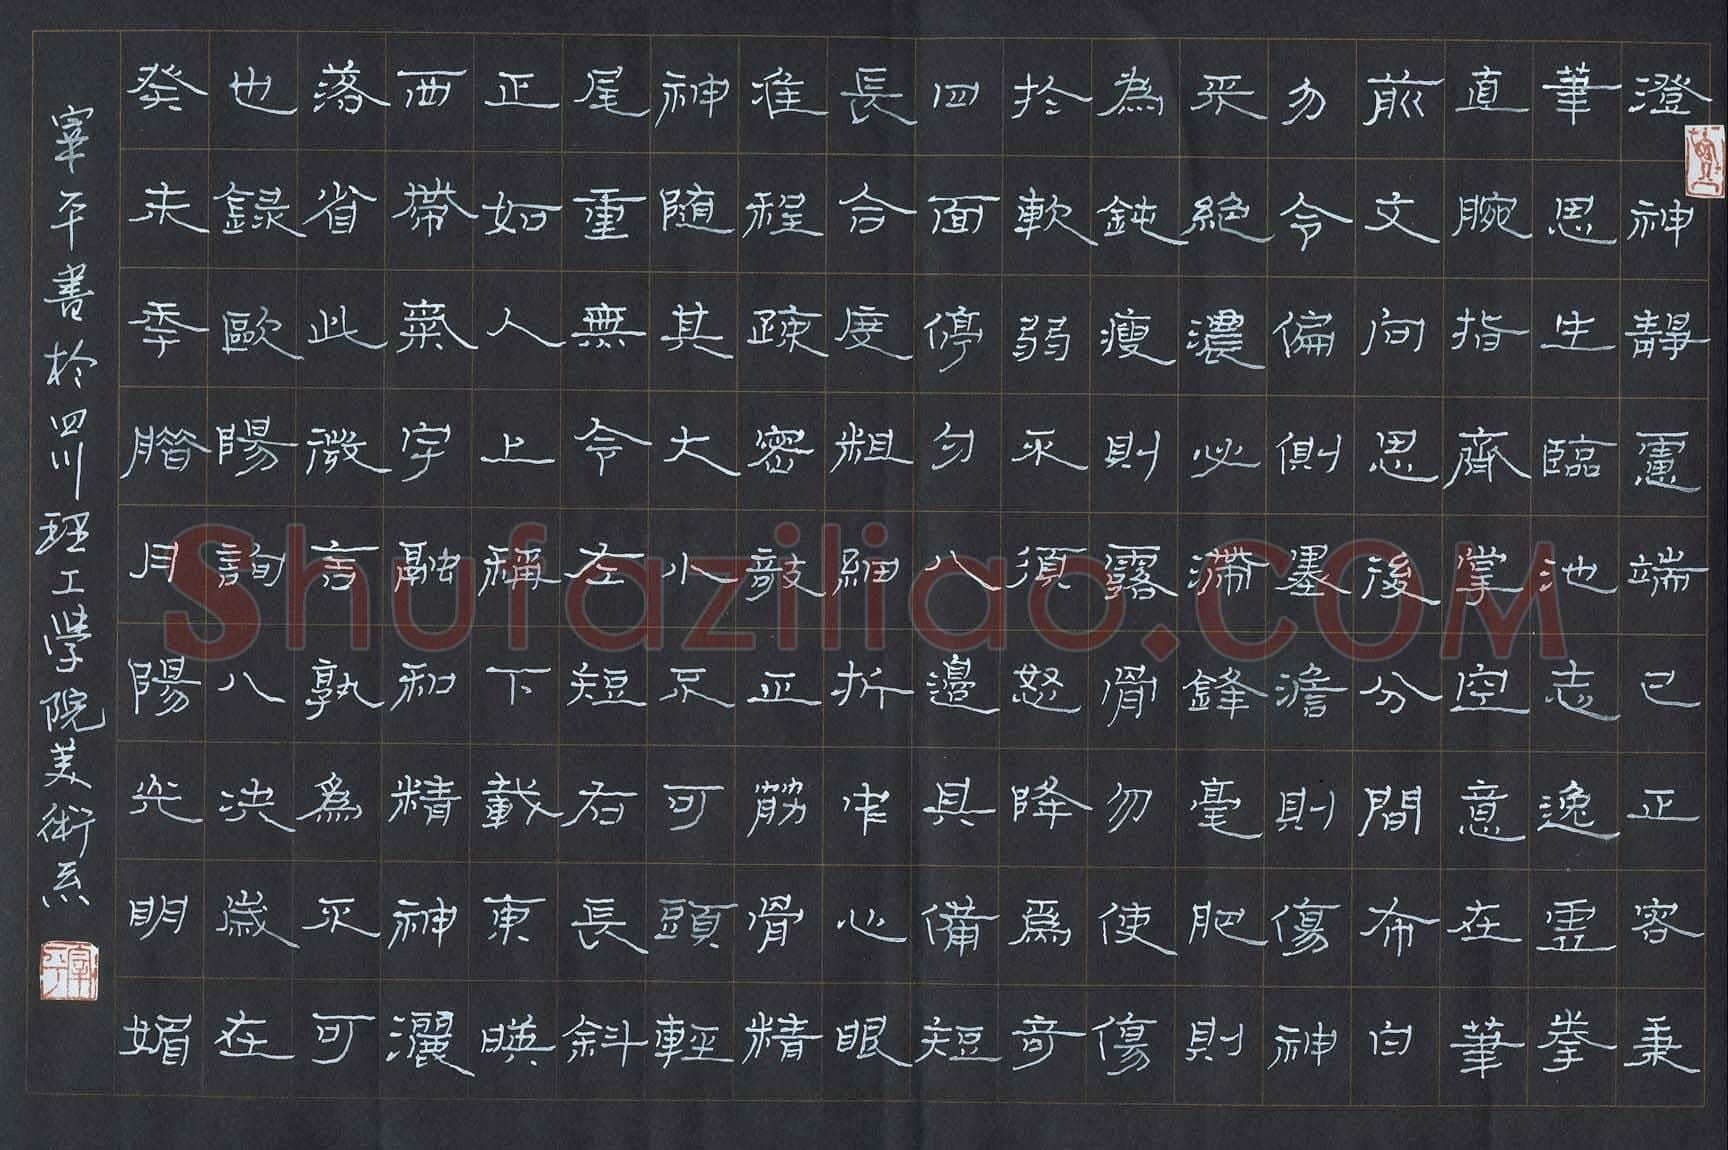 澄神靜慮端己正容秉
筆思生臨池志逸虛拳
直腕指齊掌空意在筆
前文向思後分間布白
勿令偏側墨澹則傷神
采絕濃必滯鋒毫肥則
為鈍瘦則露骨勿使傷
於軟弱不須怒降為奇
四面停勻八邊具備短
長合度粗細折中心眼
准程疎密敧正筋骨精
神隨其大小不可頭輕
尾重無令左短右長斜
正如人上稱下載東暎
西帶氣宇融和精神灑
落省此微言孰為不可
也錄歐陽詢八決歲在
癸未季腊月陽光明媚
宰平書於四川理工学院美術系
Shufaziliao.COM